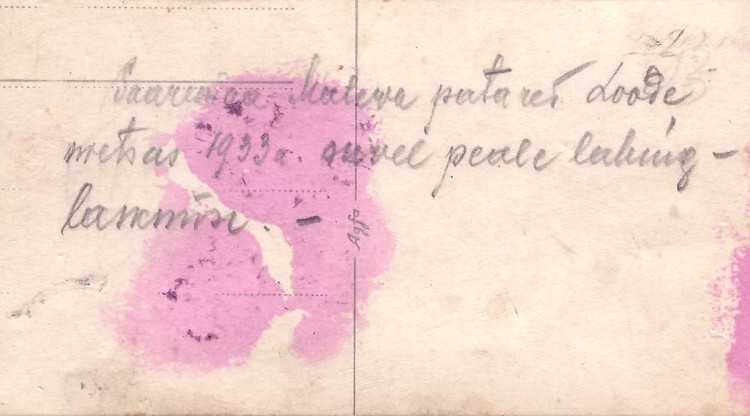 Saaremaa Maleva patarei Loode
metsas 1933 a. suvel peale lahing-
laskmisi. —
Agfa